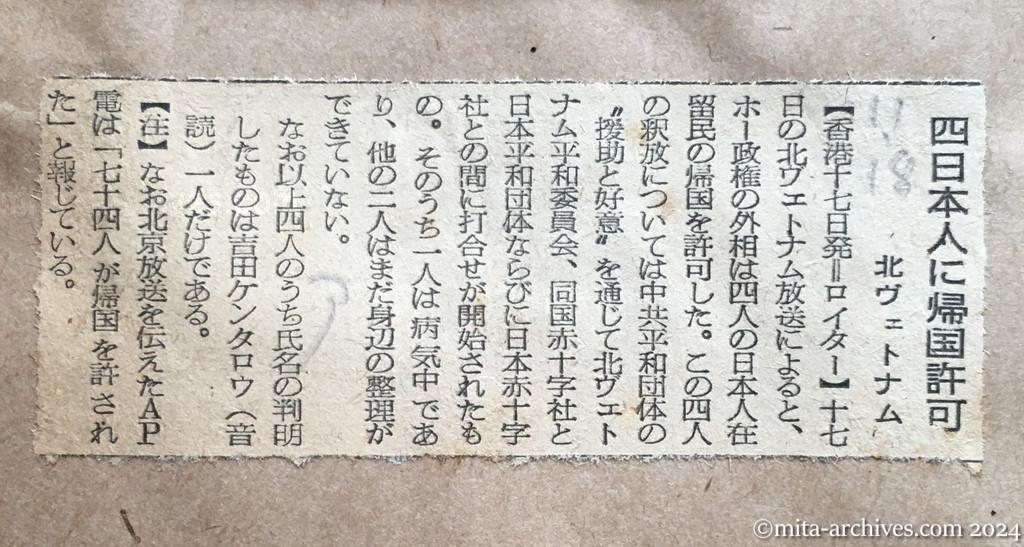 四日本人に帰国許可
北ヴェトナム
【香港十七日発＝ロイター】十七
日の北ヴェトナム放送によると、
ホー政権の外相は四人の日本人在
留民の帰国を許可した。この四人
の釈放については中共平和団体の
〝援助と好意〟を通じて北ヴェト
ナム平和委員会、同国赤十字社と
日本平和団体ならびに日本赤十字
社との間に打合せが開始されたも
の。そのうち二人は病気中であ
り、他の二人はまだ身辺の整理が
できていない。
なお以上四人のうち氏名の判明
したものは吉田ケンタロウ（音
読）一人だけである。
【注】なお北京放送を伝えたＡＰ
電は「七十四人が帰国を許され
た」と報じている。
©mita-archives.com 2024